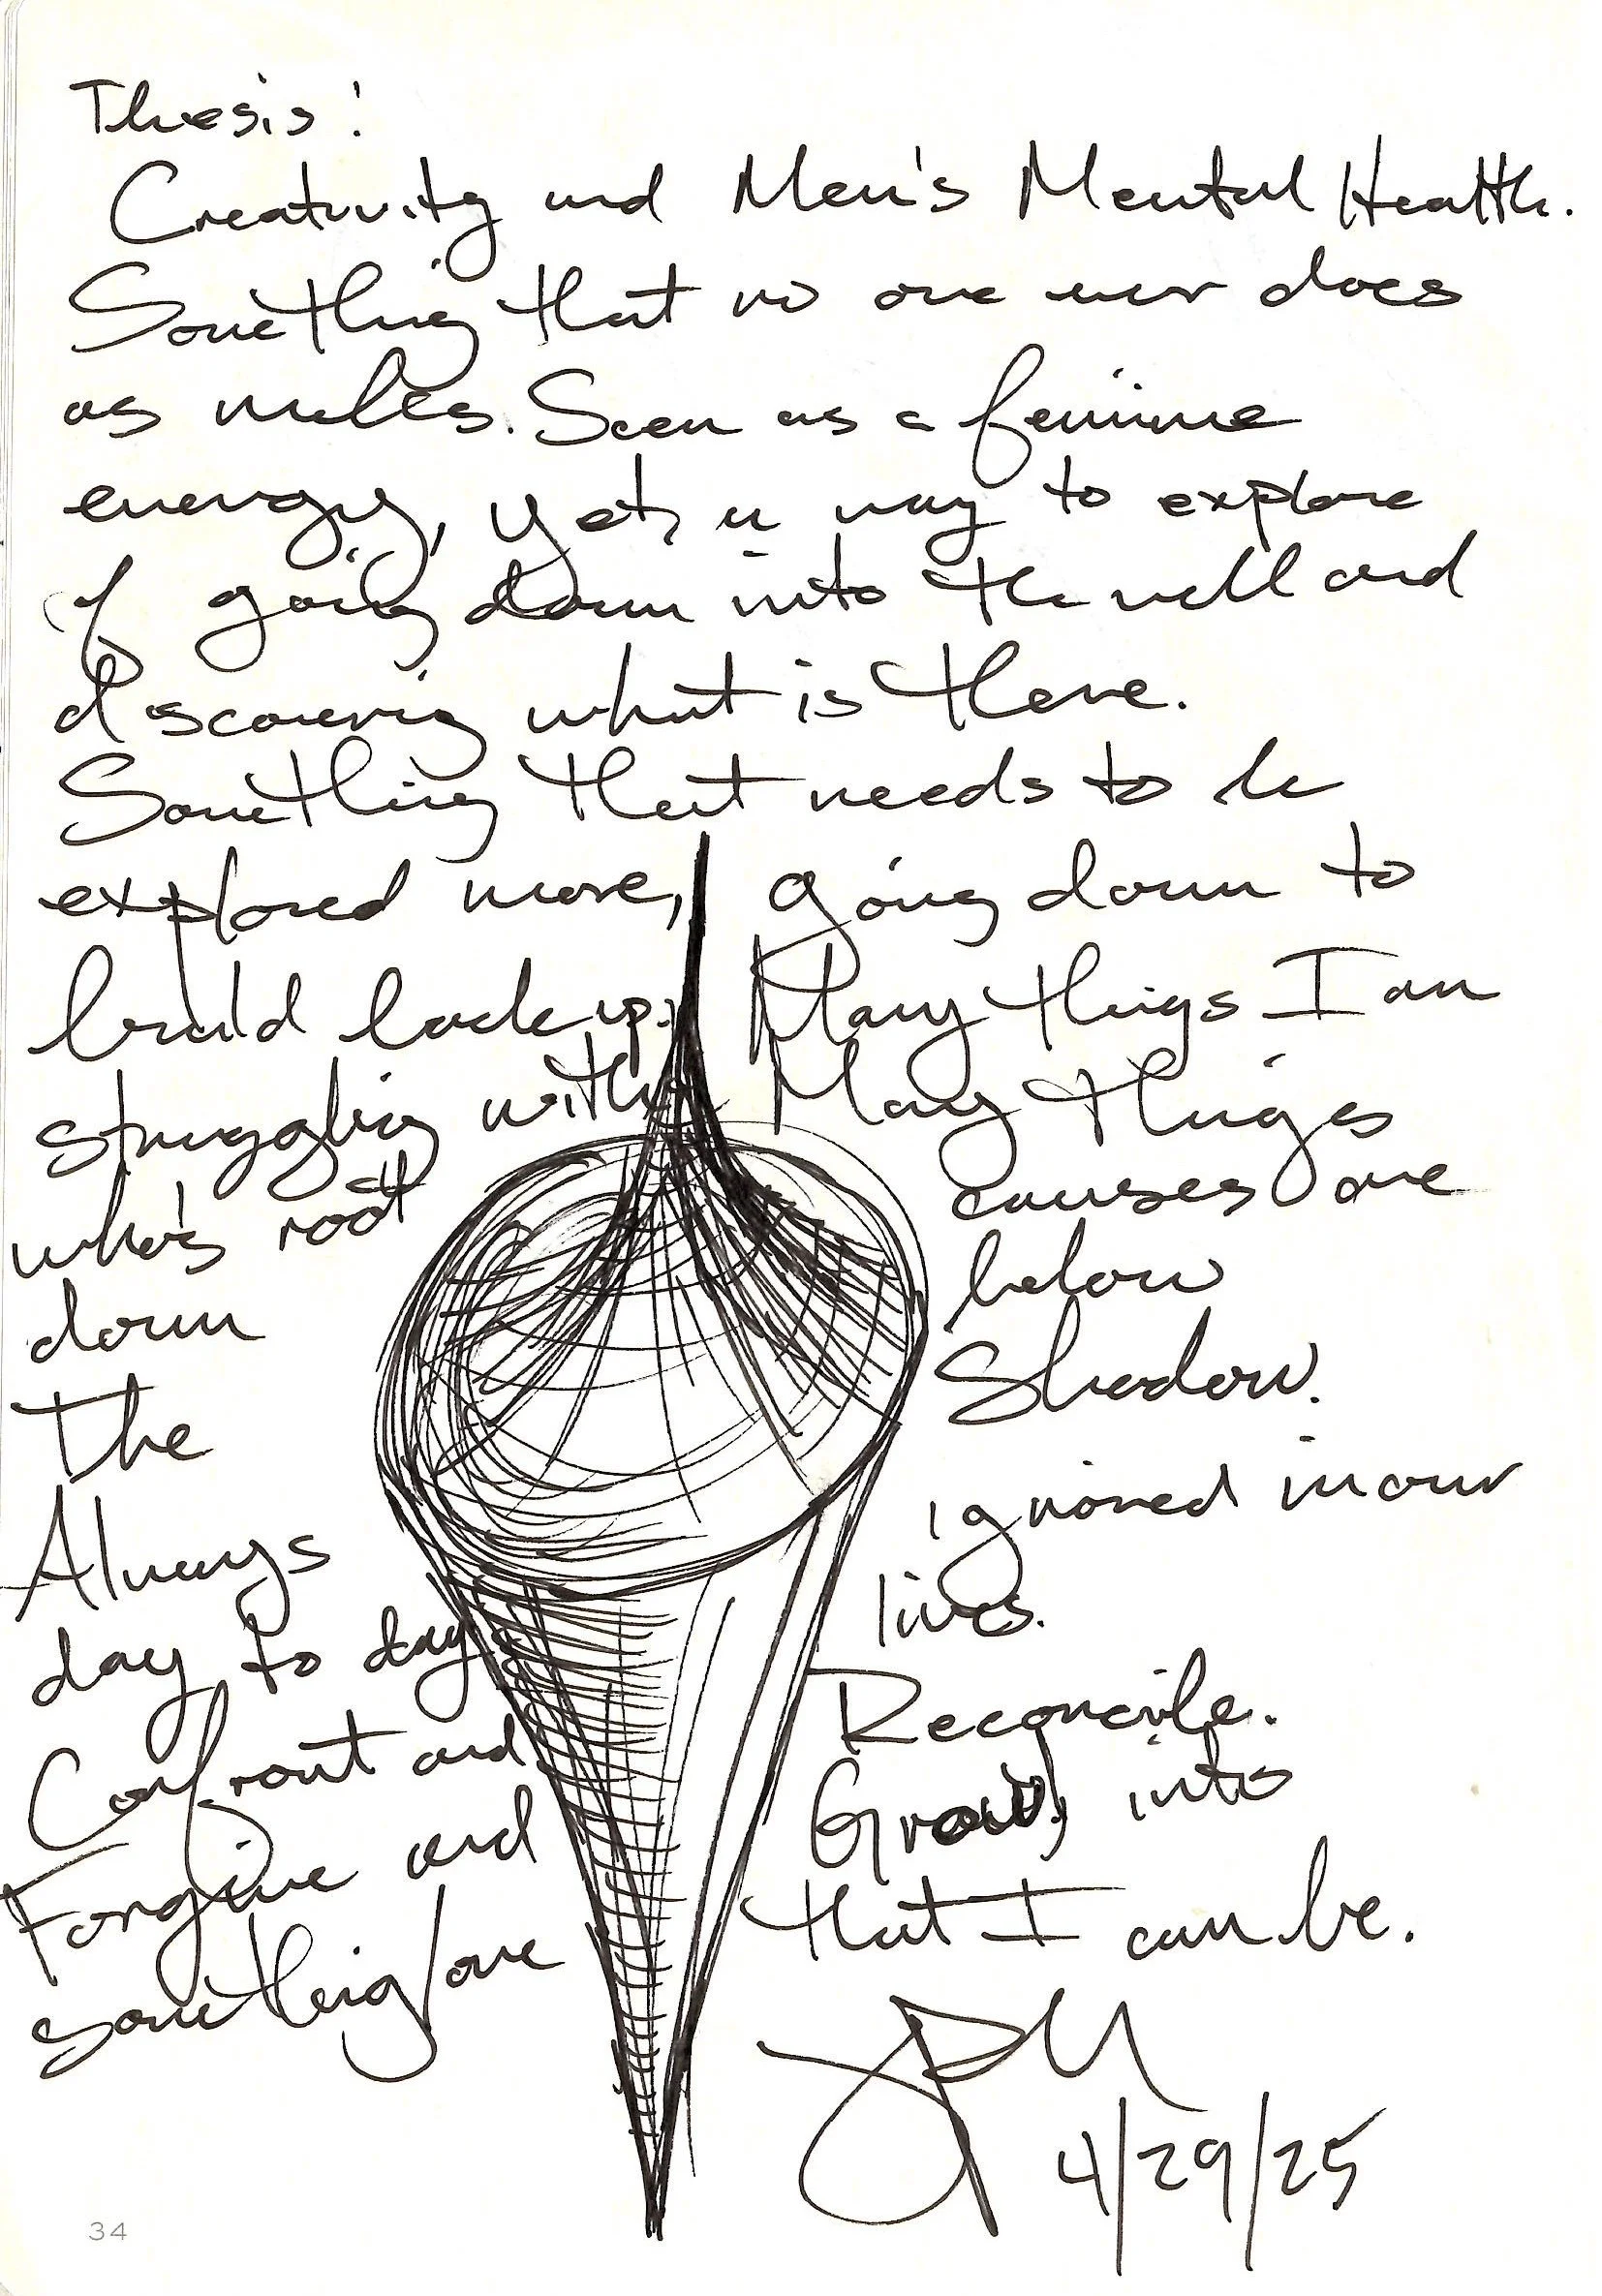 Thesis:
Creativity and Men's Mental Health.
Something that no one ever does
as males. Seen as a feminine
energy, yet, a way to explore
of going down into the well and
discovering what is there.
Something that needs to be
explored more, going down to
build back up. Many things I am
struggling with Many things
who's root causes are
down below
the Shadow.
Always ignored in our
day to day lives.
Confront and Reconcile.
Forgive and Grow into
something/one that I can be.
4/29/25
34